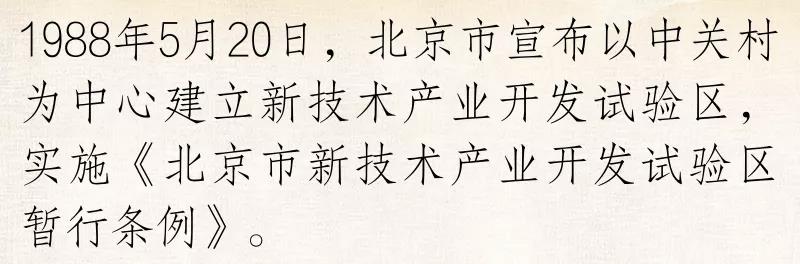 1988年5月20日，北京市宣布以中关村
为中心建立新技术产业开发试验区，
实施《北京市新技术产业开发试验区
暂行条例》。